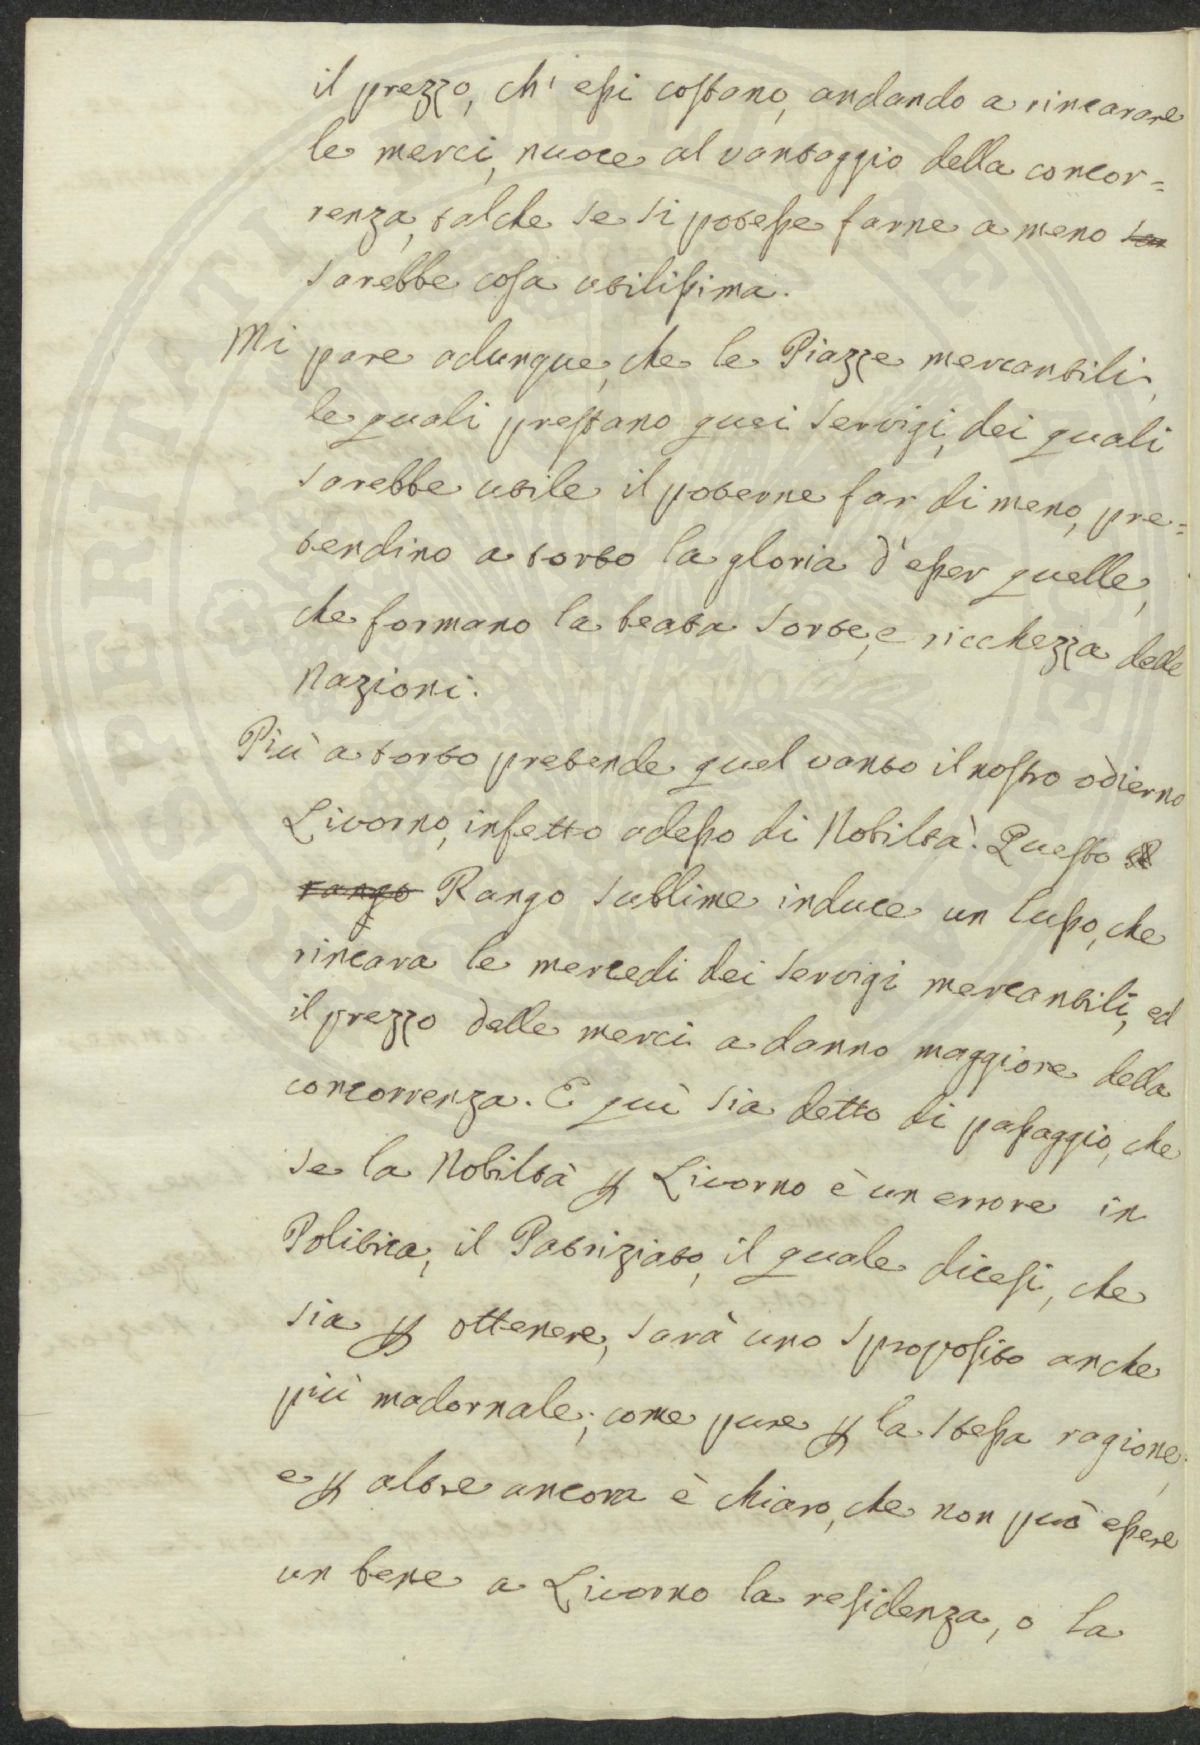 il prezzo, ch' essi costano, andando a rincarare
le merci, nuoce al vantaggio della concor=
renza, talche se si potesse farne a meno sa
sarebbe cosa utilissima.
Mi pare adunque, che le Piazze mercantili,
le quali prestano quei servigi, dei quali
sarebbe utile il poterne far di meno, pre=
tendino a torto la gloria d'esser quelle,
che formano la beata sorte, e ricchezza delle
Nazioni.
Più a torto pretende quel vanto il nostro odierno
Livorno, infetto adesso di Nobiltà. Questo
rango Rango sublime induce un lusso, che
rincara le mercedi dei servigi mercantili, ed
il prezzo delle merci a danno maggiore della
concorrenza. E quì sia detto di passaggio, che
se la Nobiltà p Livorno è un errore in
Politica, il Patriziato, il quale dicesi, che
sia p ottenere, sarà uno sproposito anche
più madornale; come pure p la stessa ragione,
e p altre ancora è chiaro, che non può essere
un bene a Livorno la residenza, o la